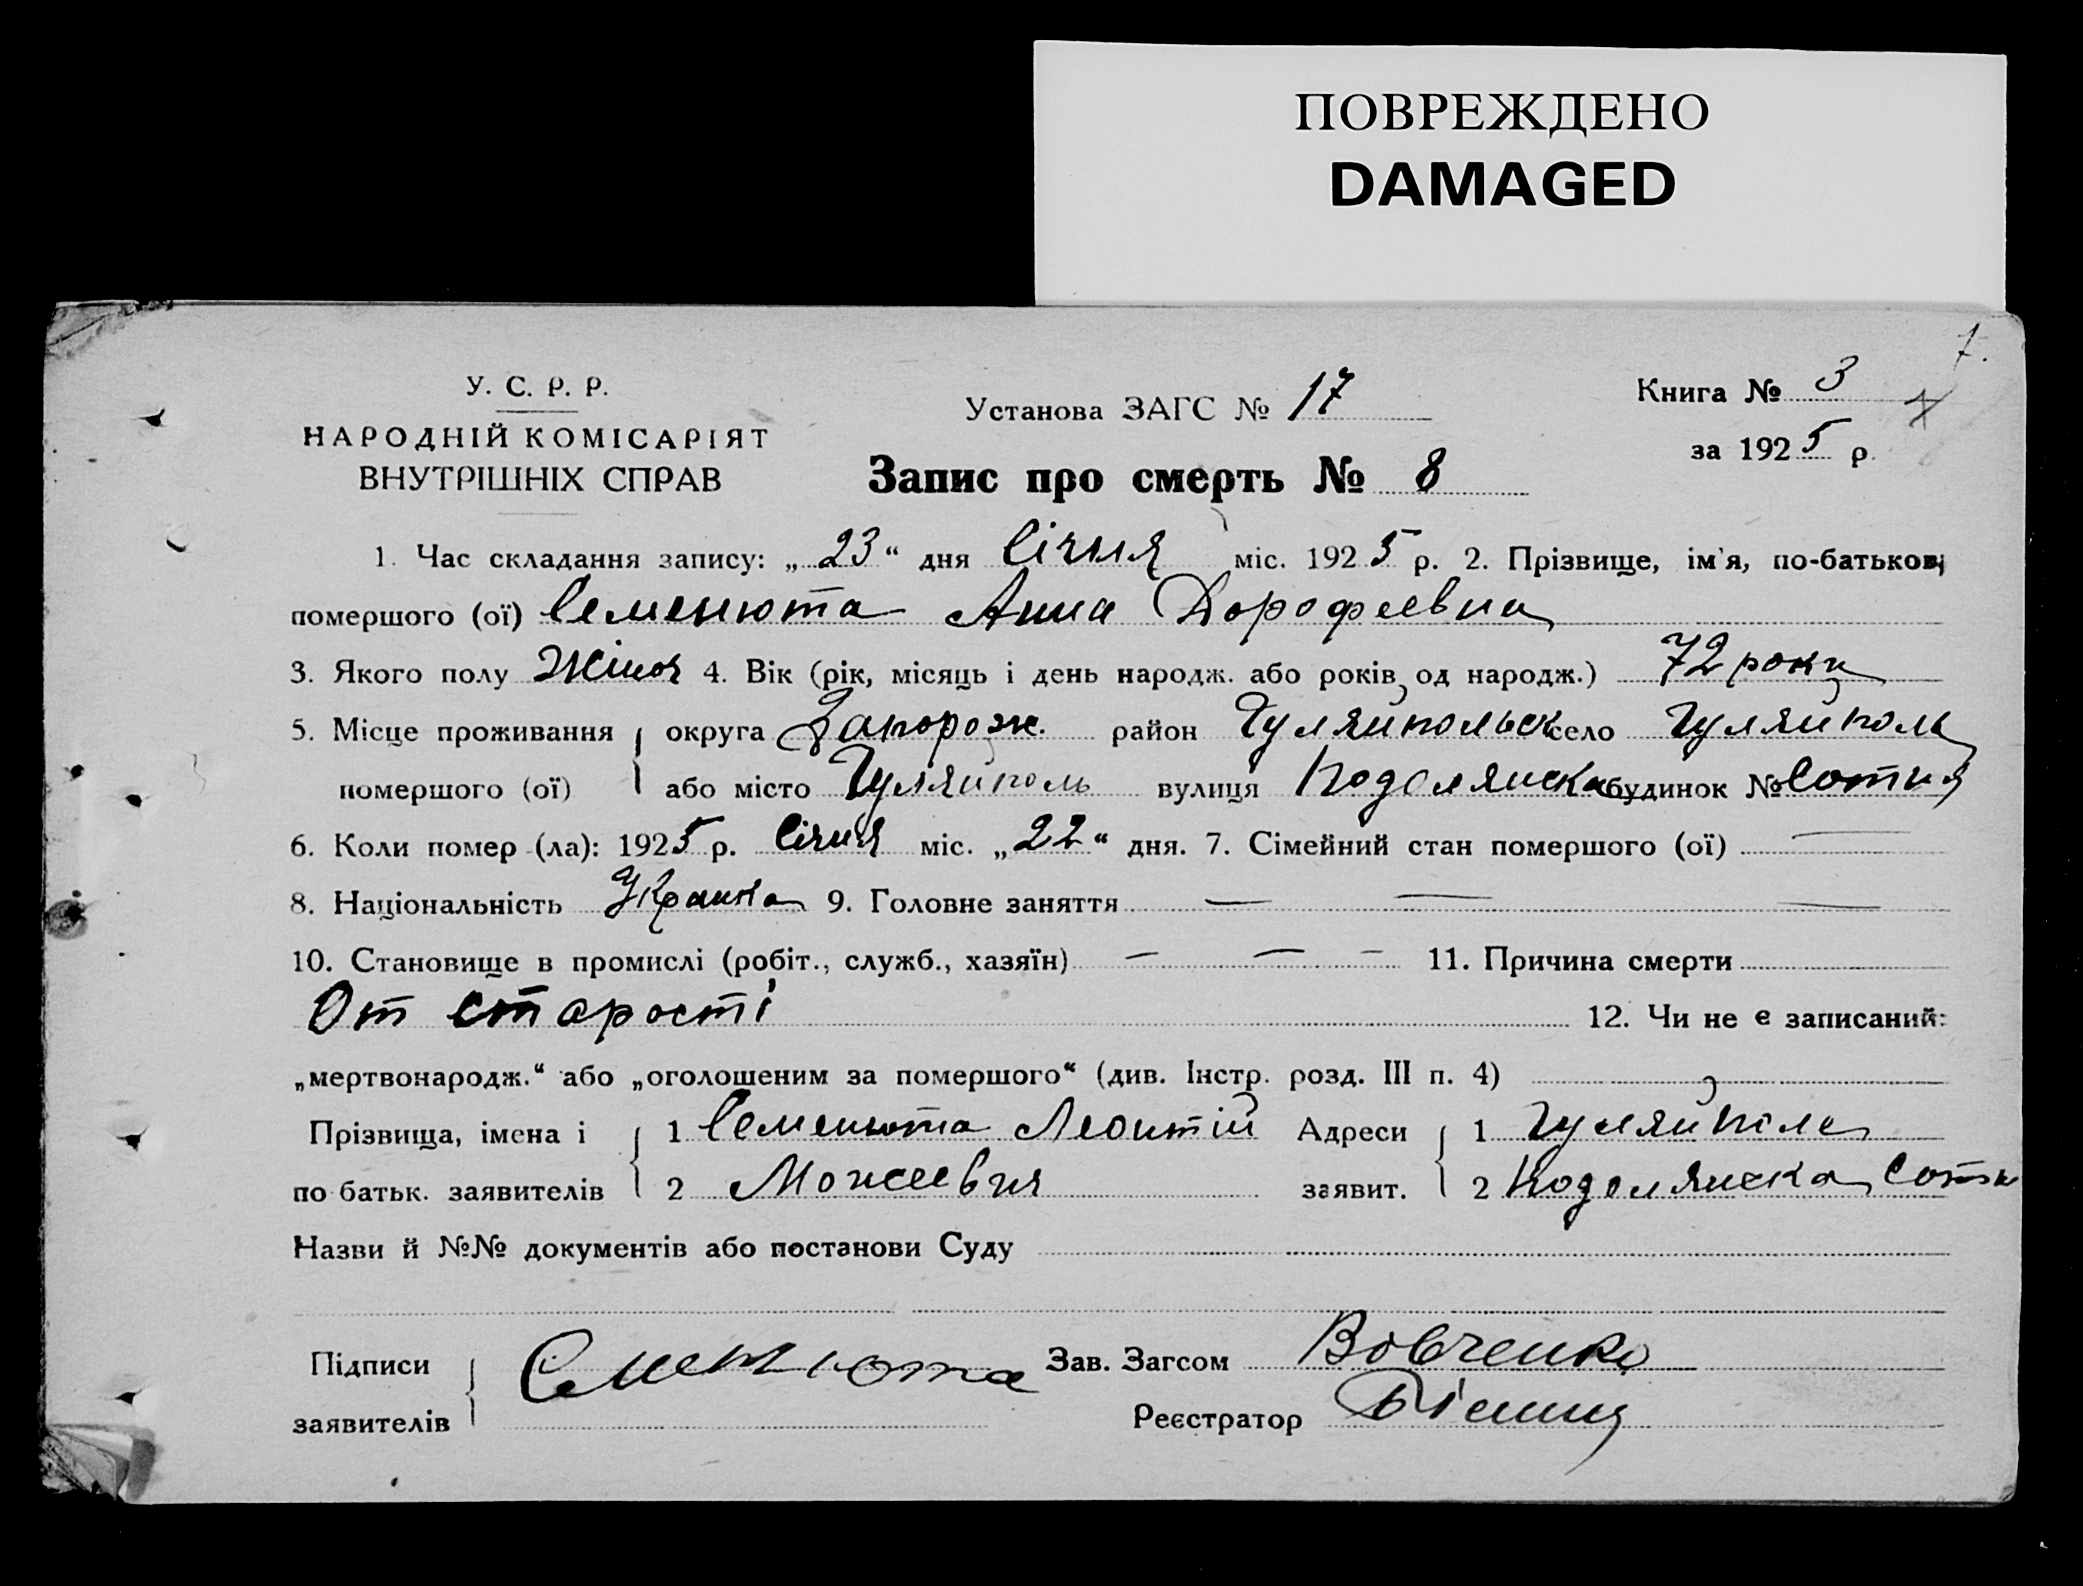 ПОВРЕЖДЕНО
DAMAGED
7.
У. С. Р. Р.
НАРОДНІЙ КОМІСАРІЯТ
ВНУТРІШНІХ СПРАВ
Установа ЗАГС № 17
Книга № 3
за 1925 р.
Запис про смерть № 8
1. Час складання запису: „23“ дня Січня міс. 1925 р. 2. Прізвище, ім'я, по-батькові
помершого (ої) Семенюта Анна Дорофеевна
3. Якого полу Жіноч 4. Вік (рік, місяць і день народж. або років од народж.) 72 роки
5. Місце проживання округа Запорож. район Гуляйпольск село Гуляйполь
помершого (ої) або місто Гуляйполь вулиця Подолянска будинок № Сотня
6. Коли помер (ла): 1925 р. Січня міс. „22“ дня. 7. Сімейний стан помершого (ої) —
8. Національність Українка 9. Головне заняття — — —
10. Становище в промислі (робіт., служб., хазяїн) — — — 11. Причина смерти
От старості 12. Чи не є записаний:
„мертвонародж.“ або „оголошеним за помершого“ (див. Інстр. розд. III п. 4)
Прізвища, імена і 1 Семенюта Леонтій Адреси 1 Гуляйполе
по батьк. заявителів 2 Мойсеевич заявит. 2 Подолянска Сотн
Назви й №№ документів або постанови Суду
Підписи Семенюта Зав. Загсом Вовченко
заявителів Реєстратор